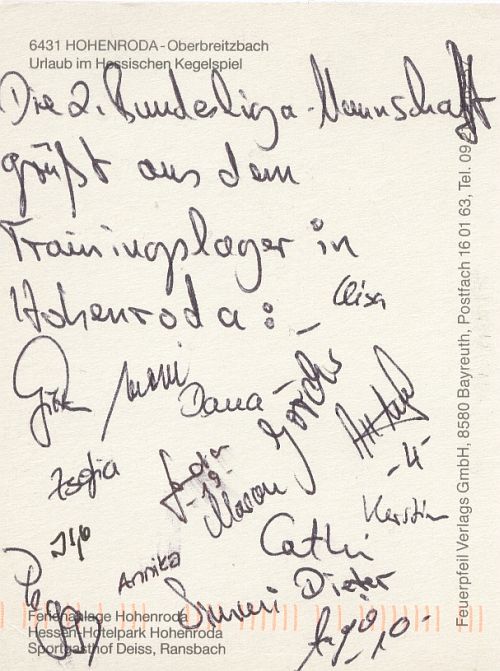 6431 HOHENRODA-Oberbreitzbach
Urlaub im Hessischen Kegelspiel
Die 2. Bundesliga-Mannschaft
grüßt aus dem
Trainingslager in
Hohenroda:
Elisa
Dana
Zsofia
-19-
-4-
Kerstin
Annika
Cathi
Dieter
-10-
Ferienanlage Hohenroda
Hessen-Hotelpark Hohenroda
Sporthotel Deiss, Ransbach
Feuerpfeil Verlags GmbH, 8580 Bayreuth, Postfach 16 01 63, Tel. 09